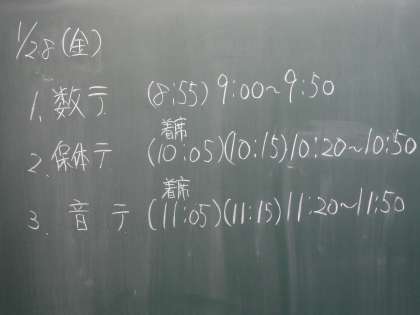 1/28(金)
1. 数テ (8:55) 9:00～9:50
着席
2. 保体テ (10:05)(10:15)10:20～10:50
着席
3. 音テ (11:05)(11:15)11:20～11:50